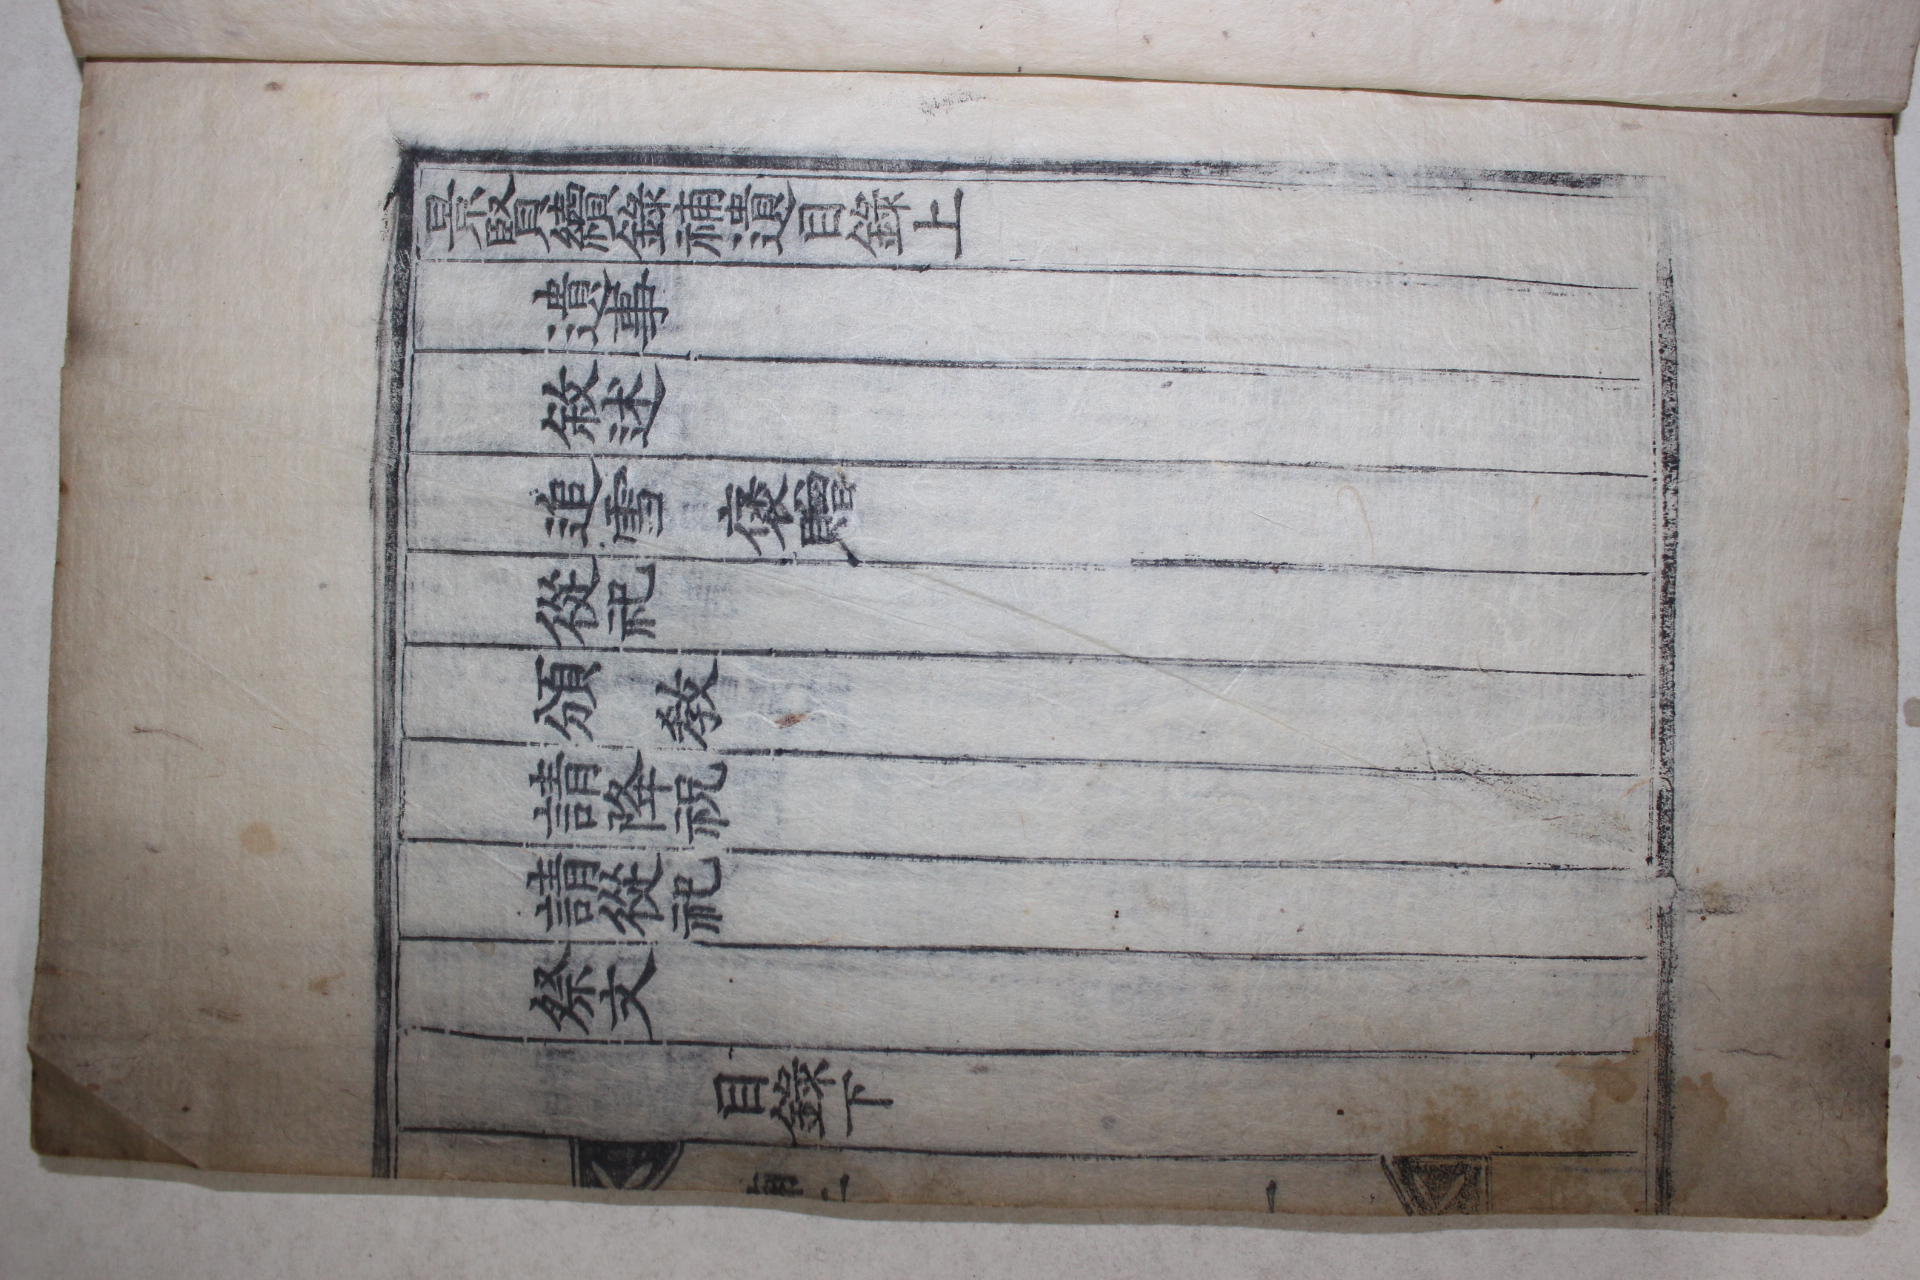 景賢續錄補遺目錄上
遺事
敘述
追雪 褒贈
從祀
頒 敎
請降祝
請從祀
祭文
目錄下
一